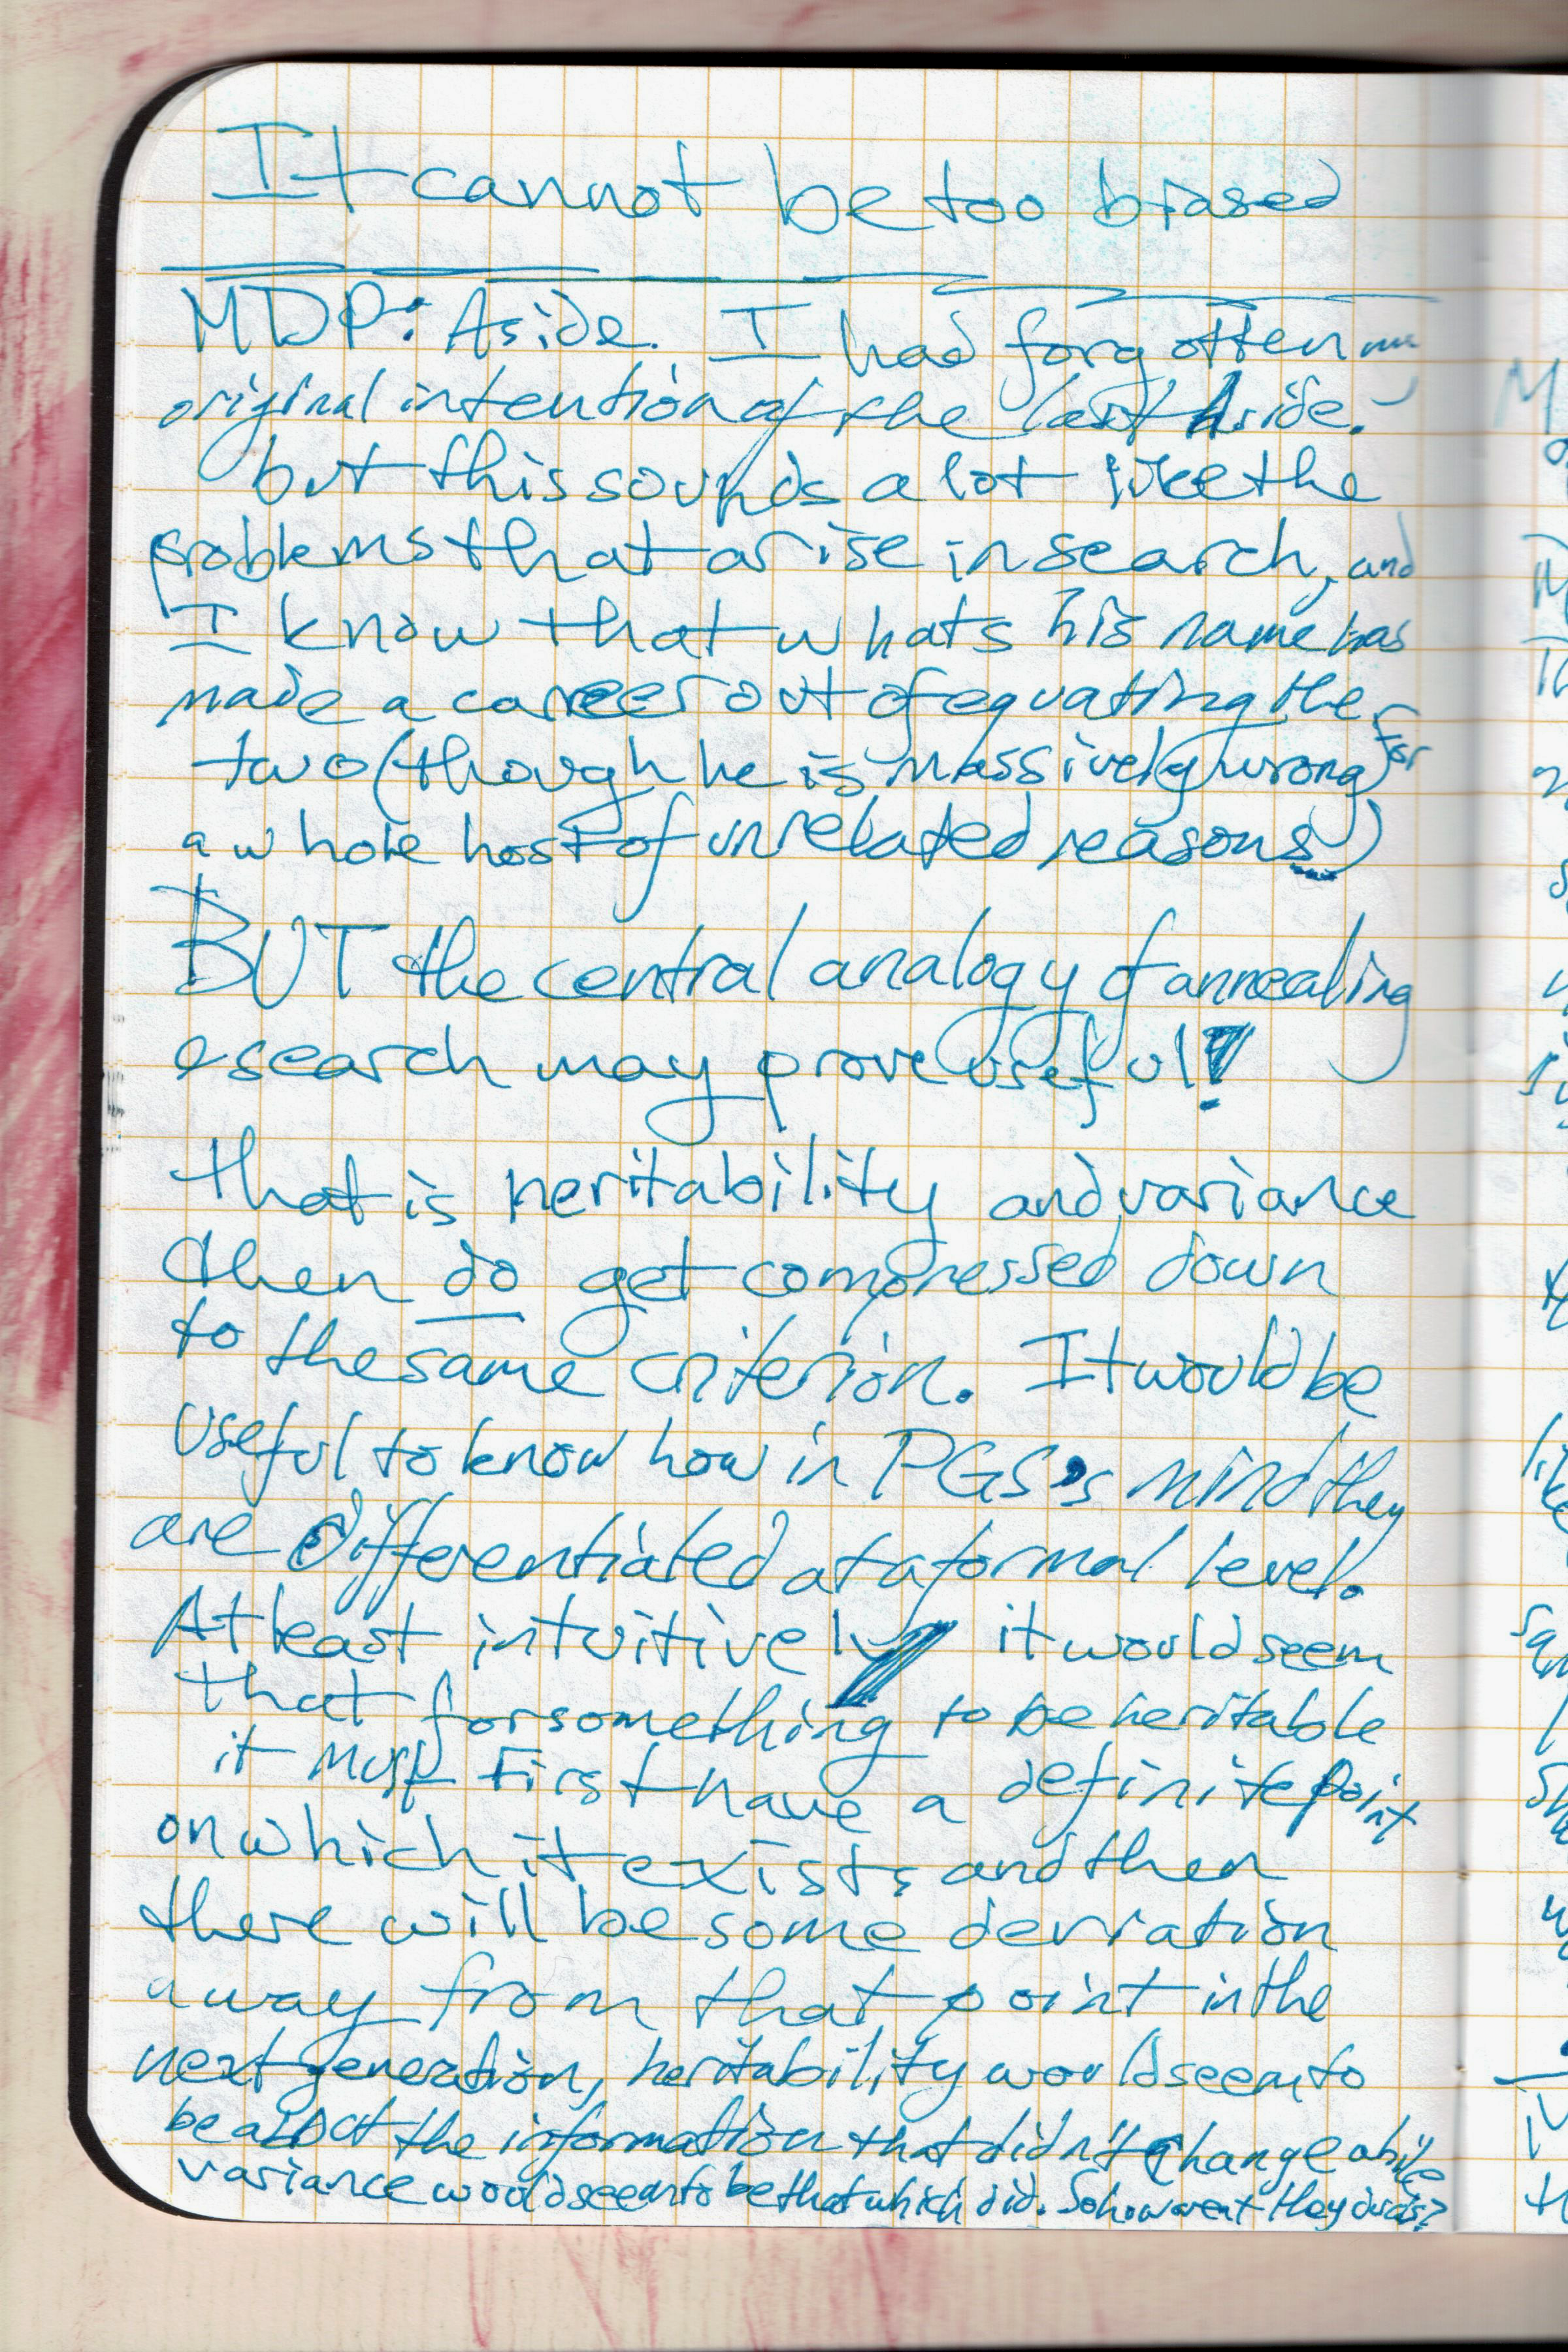 It cannot be too biased
MDP: Aside. I had forgotten my
original intention of the last Aside.
but this sounds a lot like the
problems that arise in search, and
I know that whats his name has
made a career out of equating the
two (though he is massively wrong for
a whole host of unrelated reasons)
BUT the central analogy of annealing
a search may prove useful!
that is heritability and variance
then do get compressed down
to the same criterion. It would be
useful to know how in PGS's mind they
are differentiated at a formal level.
At least intuitively it would seem
that for something to be heritable
it must first have a definite point
on which it exists and then
there will be some deviation
away from that point in the
next generation, heritability would seem to
be about the information that didn't change while
variance would seem to be that which did. So how aren't they duals?